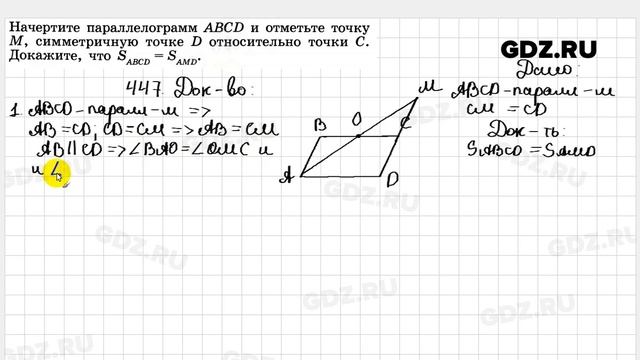 Начертите параллелограмм ABCD и отметьте точку
M, симметричную точке D относительно точки C.
Докажите, что S_ABCD = S_AMD.
GDZ.RU
447. Док-во:
Дано:
1. ABCD-паралл-м =>
AB = CD, CD = CM => AB = CM
AB || CD => ∠BAO = ∠OMC и
и ∠
M
B
O
C
A
D
ABCD-паралл-м
CM = CD
Док-ть:
SABCD = SAMD
GDZ.RU
GDZ.RU
GDZ.RU
GDZ.RU
GDZ.RU
GDZ.RU